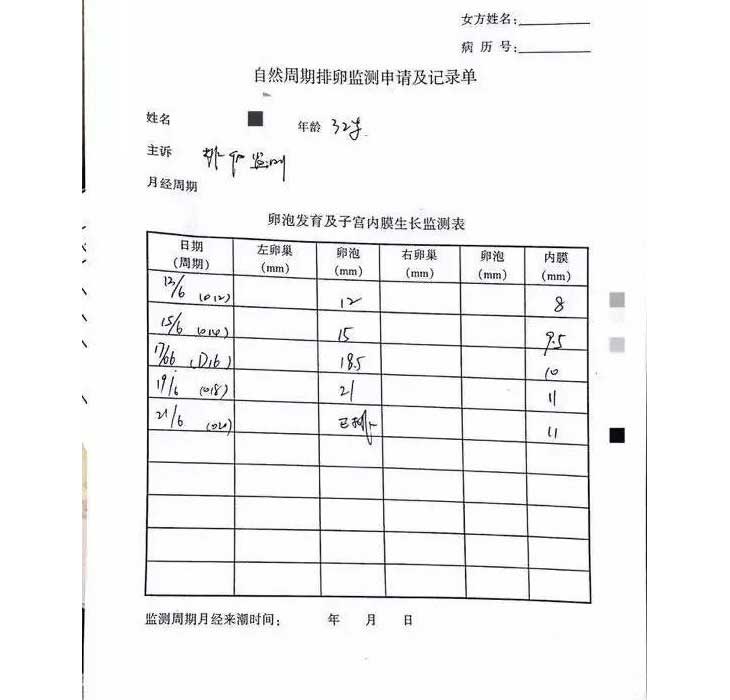 女方姓名：
病 历 号：
自然周期排卵监测申请及记录单
姓名 年龄 32岁
主诉 排卵监测
月经周期
卵泡发育及子宫内膜生长监测表
日期（周期） 左卵巢（mm） 卵泡（mm） 右卵巢（mm） 卵泡（mm） 内膜（mm）
13/6 (D12) 12 8
15/6 (D14) 15 9.5
17/6 (D16) 18.5 10
19/6 (D18) 21 11
21/6 (D20) 已排 11
监测周期月经来潮时间： 年 月 日